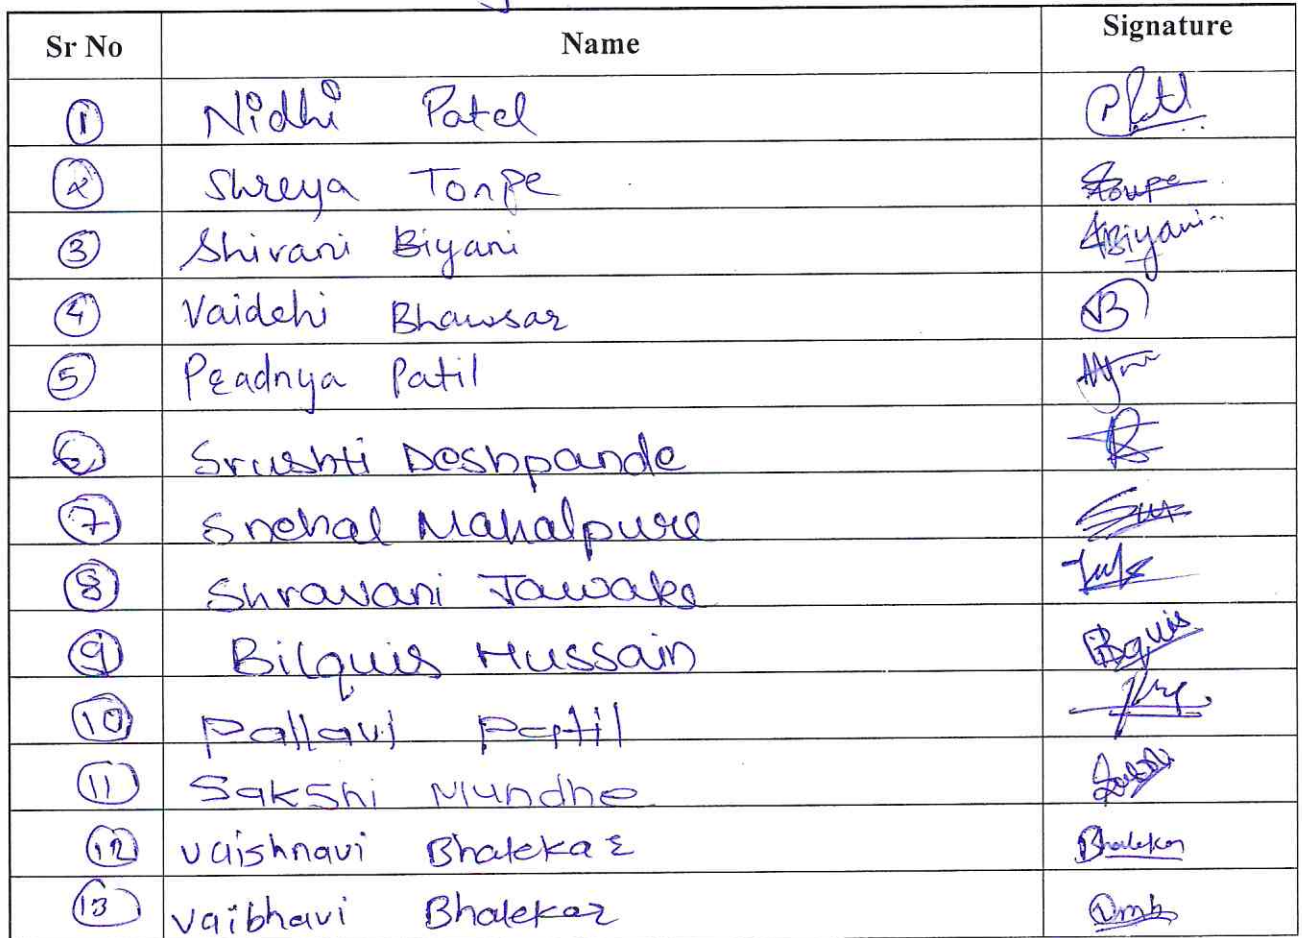 Sr No Name Signature
1 Nidhi Patel
2 Shreya Tonpe Tonpe
3 Shivani Biyani Biyani
4 Vaidehi Bhawsar VB
5 Pradnya Patil
6 Srushti Deshpande
7 Snehal Mahalpure
8 Shravani Jawake
9 Bilquis Hussain Bquis
10 Pallavi Patil
11 Sakshi Mundhe Sakshi
12 Vaishnavi Bhalekar Bhalekar
13 Vaibhavi Bhalekar